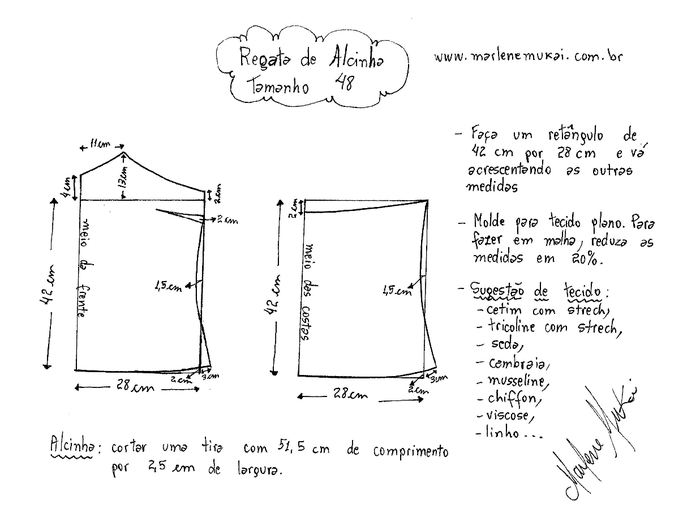 Regata de Alcinha
Tamanho 48
www.marlenemukai.com.br
- Faça um retângulo de
42 cm por 28 cm e vá
acrescentando as outras
medidas
- Molde para tecido plano. Para
fazer em malha, reduza as
medidas em 20%.
- Sugestão de tecido:
- cetim com strech,
- tricoline com strech,
- seda,
- cambraia,
- musseline,
- chiffon,
- viscose,
- linho...
11cm
4cm
12cm
2cm
2cm
meio da frente
42 cm
1,5cm
2cm
3cm
28 cm
2cm
meio das costas
42 cm
1,5cm
2cm
3cm
28cm
Alcinha: cortar uma tira com 51,5 cm de comprimento
por 2,5 cm de largura.
Marlene Mukai